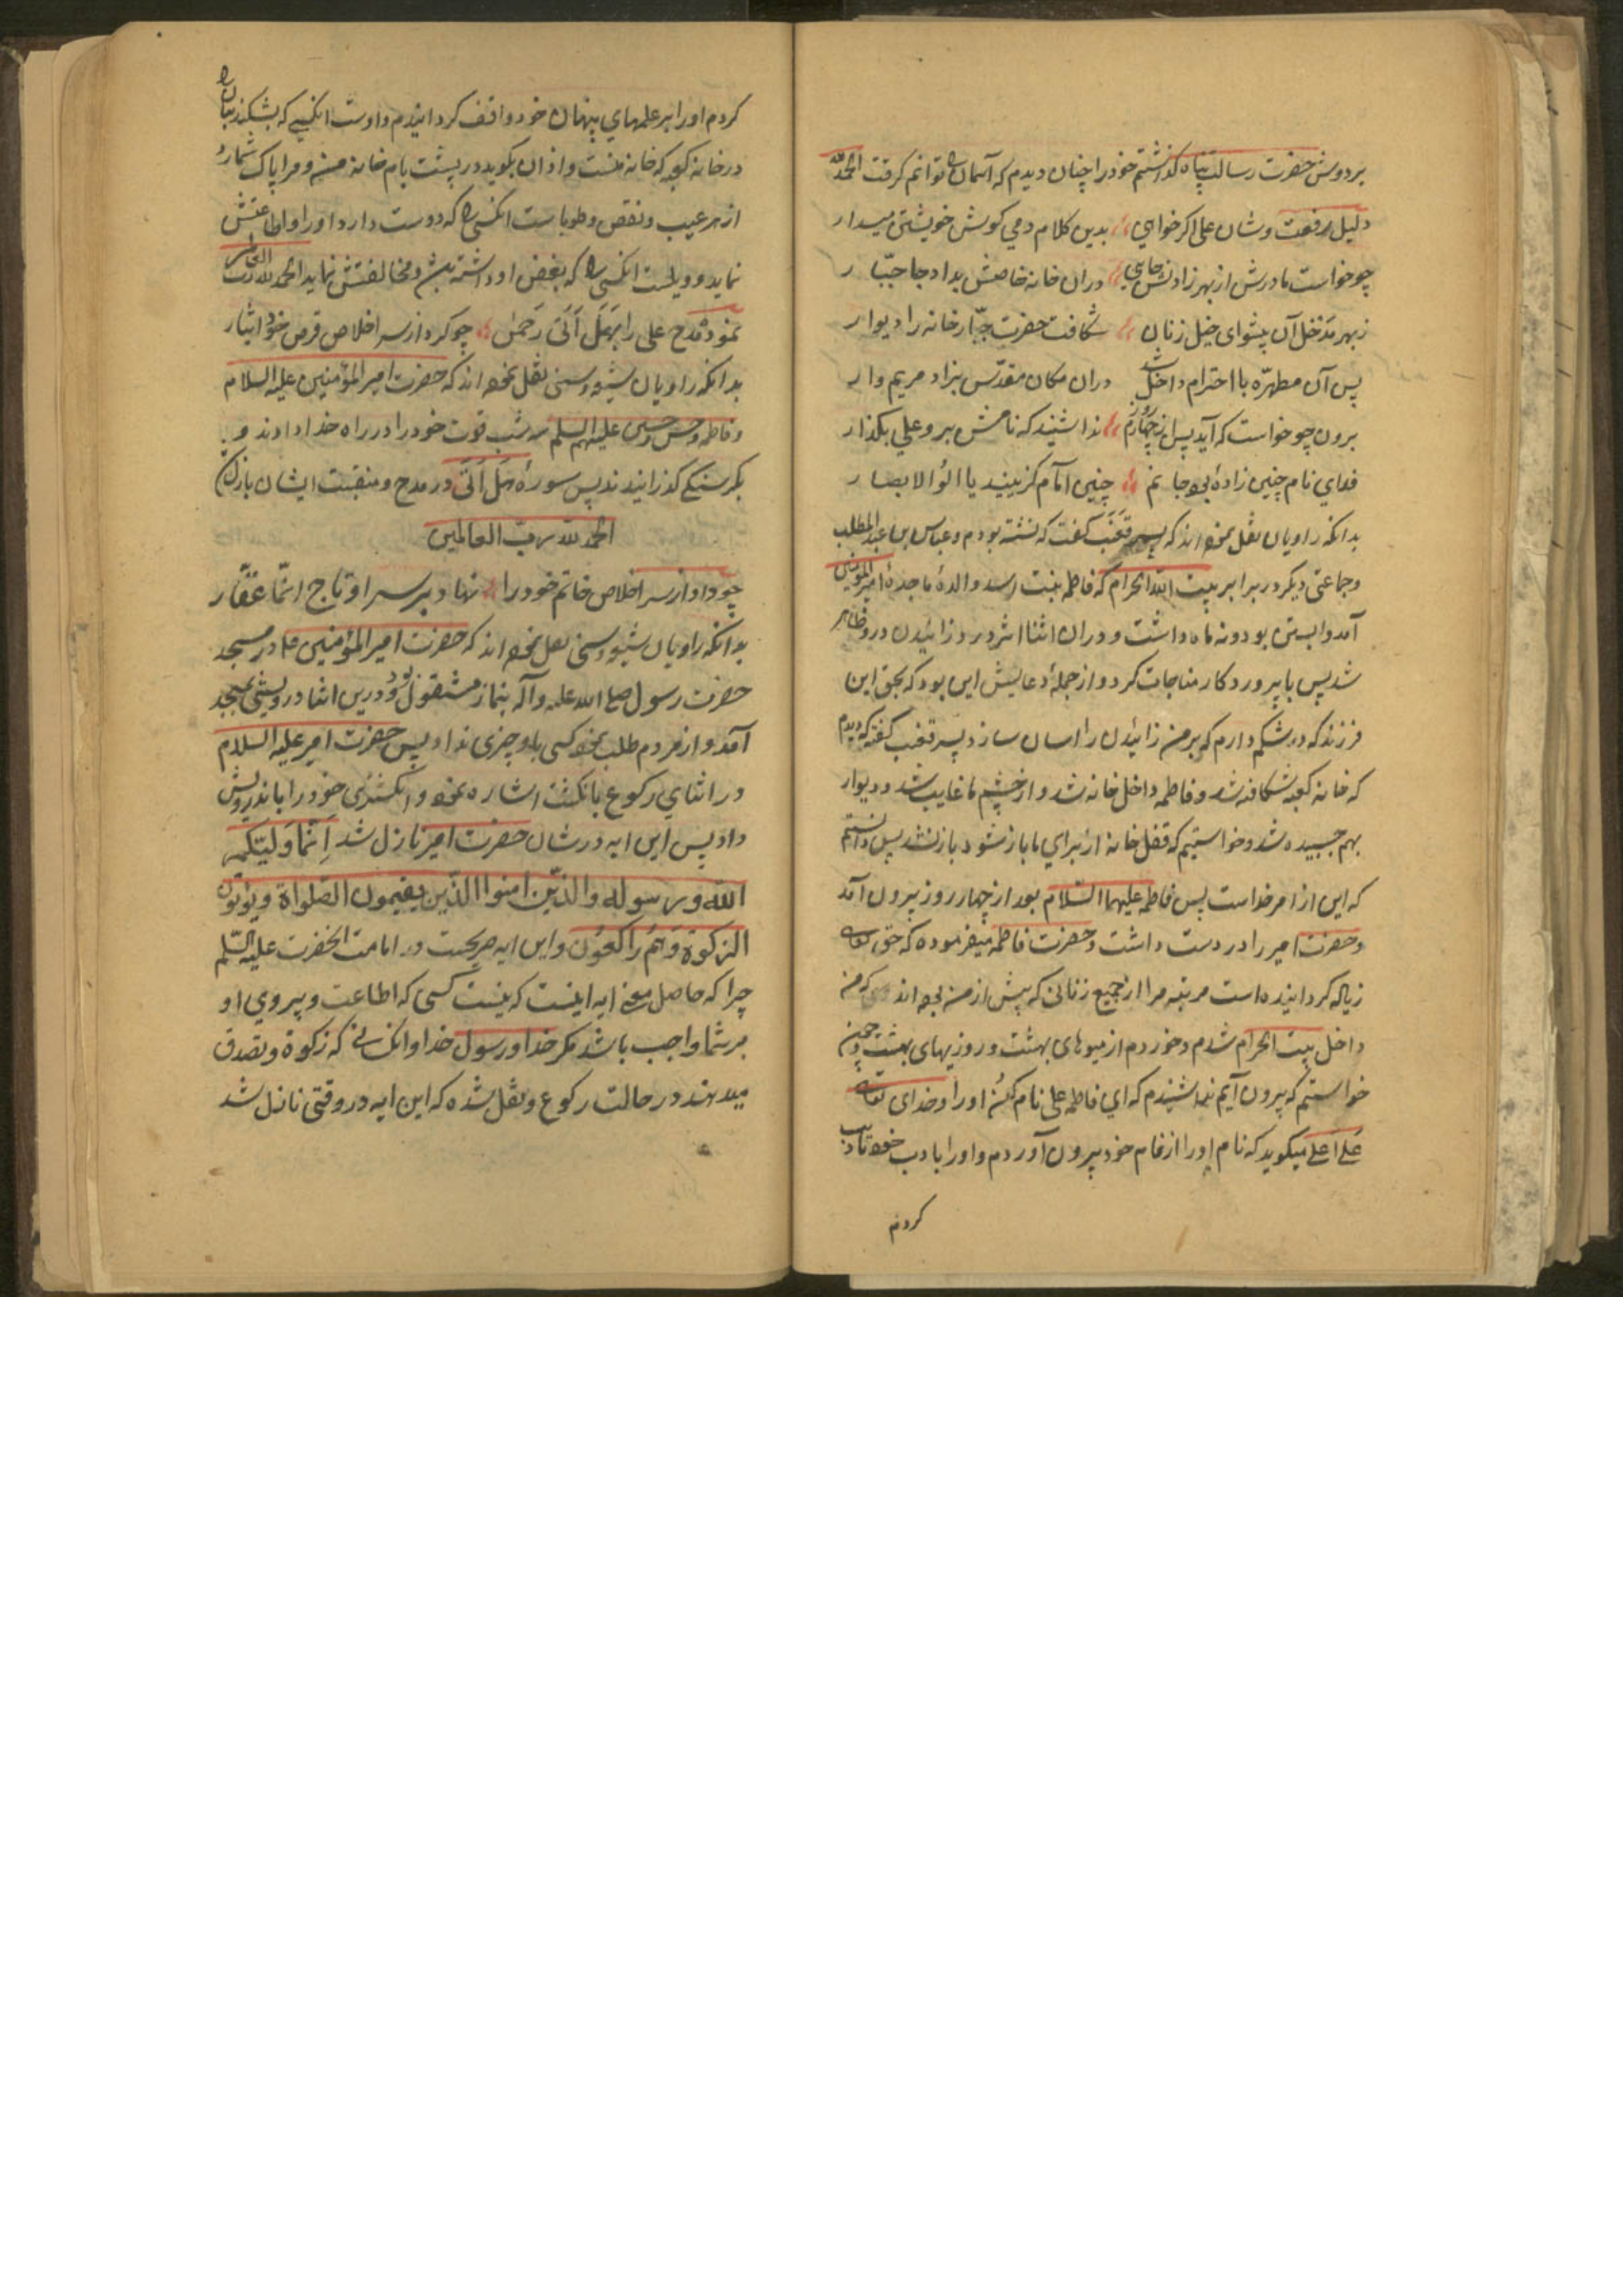 بردوش حضرت رسالت پناه گذاشتم خود را چنان دیدم که آسمان را توانم گرفت الحمد لله
دلیل رفعت و شان علی اگر خواهی بدین کلام دمی گوش خویشتن میدار
چو خواست مادرش از بهر زادنش جایی دران خانه خاصش بداد جا جبّار
ز بهر مدخل آن پیشوای خیل زنان شکافت حضرت جبّار خانه را دیوار
پس آن مطهّره با احترام داخل شد دران مکان مقدّس بزاد مریم وار
برون چو خواست که آید پس از چهارم روز ندا شنید که نامش برو علی بگذار
فدای نام چنین زادهٔ بود جانم چنین امام گزینید یا اولوالابصار
بدانکه راویان نقل نموده‌اند که پسر قعنب گفت که نشسته بودم و عباس بن عبد المطلب
و جماعتی دیگر در برابر بیت الله الحرام که فاطمه بنت اسد والدهٔ ماجدهٔ امیر المؤمنین
آمد و ابستن بود و نه ماه داشت و دران اثنا اثر درد زائیدن درو ظاهر
شد پس با پروردکار مناجات کرد و از جملهٔ دعایش این بود که بحق این
فرزند که در شکم دارم که بر من زائیدن را اسان ساز و پسر قعنب گفته که دیدم
که خانه کعبه شکافته شد و فاطمه داخل خانه شد و از چشم ما غایب شد و دیوار
بهم چسبیده شد و خواستیم که قفل خانه از برای ما باز شود باز نشد پس دانستم
که این از امر خداست پس فاطمه علیها السّلام بعد از چهار روز بیرون آمد
و حضرت امیر را در دست داشت و حضرت فاطمه میفرموده که حق تعالی
زیاله کردانیده است مرتبه مرا از جمیع زنانی که پیش از من بوده‌اند که من
داخل بیت الحرام شدم و خوردم از میوهای بهشت و روزیهای بهشت و چون
خواستم که بیرون آیم ندا شنیدم که ای فاطمه علی نام کن او را و خدای تعالی
علی اعلی میکوید که نام او را از نام خود بیرون آوردم و او را بادب خود تادیب
کردم
کردم او را بر علمهای پنهان خود واقف کردانیدم و اوست انکسی که بشکند بتان را
در خانه کعبه که خانه منست و اذان بکوید در پشت بام خانه من و مرا پاک شمارد
از هر عیب و نقص و طوبا ست انکسی را که دوست دارد او را و اطاعتش
نماید و ویلست انکسی را که بغض او داشته باشد و مخالفتش نماید الحمد لله رب العالمین
نمود مدح علی را بهل اتی رحمن چو کرد از سر اخلاص قرص خود ایثار
بدانکه راویان شیعه و سنی نقل نموده‌اند که حضرت امیر المؤمنین علیه السلام
و فاطمه و حسن و حسین علیهم السلم سه شب قوت خود را در راه خدا دادند و
بکرسنکی کذرانیدند پس سورهٔ هل اتی در مدح و منقبت ایشان نازل شد
الحمد لله رب العالمین
چو داد از سر اخلاص خاتم خود را نهاد بر سر او تاج انّما غفّار
بدانکه راویان شیعه و سنی نقل نموده‌اند که حضرت امیر المؤمنین در مسجد
حضرت رسول صلی الله علیه و آله بنماز مشغول بود و درین اثنا درویشی بمسجد
آمد و از مردم طلب نمود کسی باو چیزی نداد پس حضرت امیر علیه السلام
در اثنای رکوع بانکشت اشاره نمود و انکشتری خود را باندرویش
داد پس این ایه در شان حضرت امیر نازل شد اِنّما ولیّکم
اللّه و رسوله والذین امنوا الّذین یقیمون الصّلواة ویؤتون
الزکوة وهم راکعون و این ایه صریحست در امامت انحضرت علیه السّلم
چرا که حاصل معنی ایه اینست که نیست کسی که اطاعت و پیروی او
بر شما واجب باشد مکر خدا و رسول خدا و انکسانی که زکوة و تصدق
میدهند در حالت رکوع و نقل شده که این ایه در وقتی نازل شد